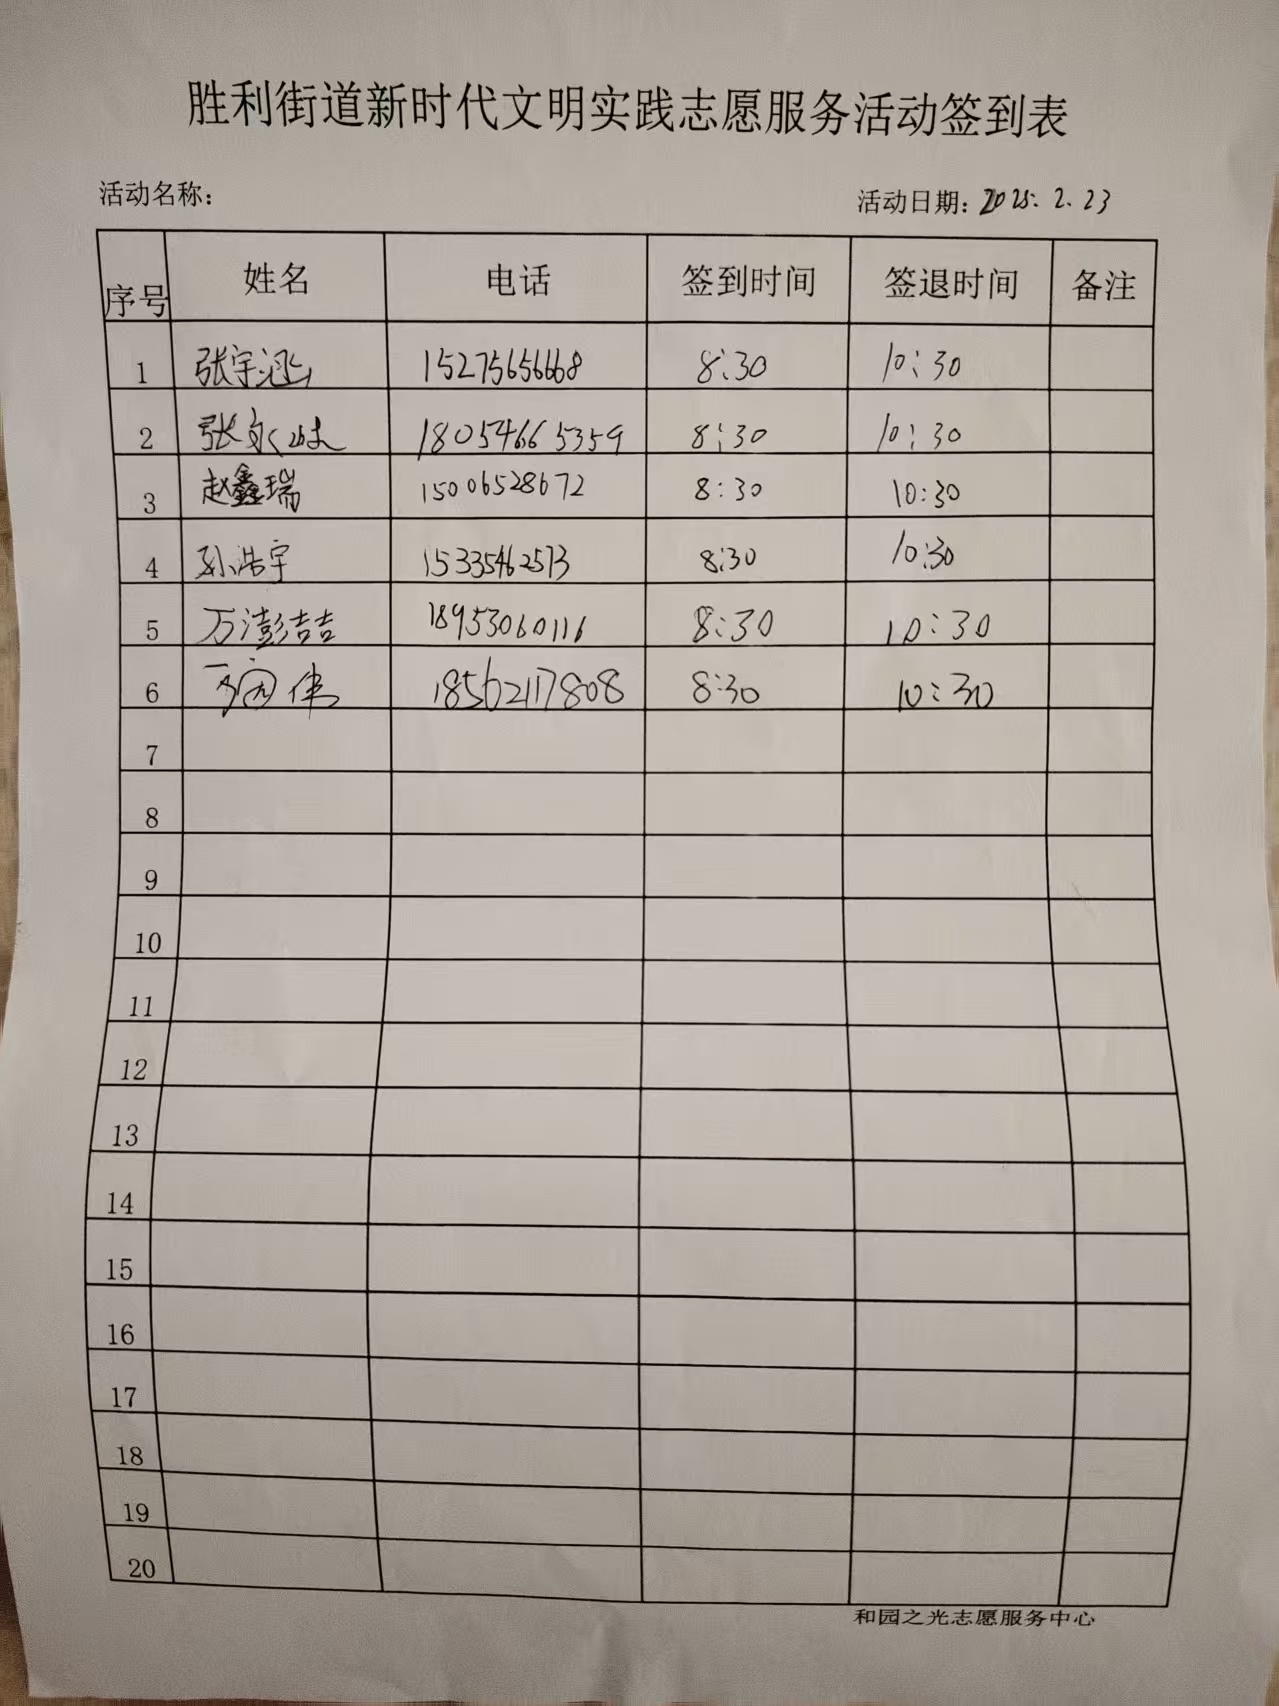 胜利街道新时代文明实践志愿服务活动签到表
活动名称： 活动日期：2025.2.23
序号 姓名 电话 签到时间 签退时间 备注
1 张宇涵 15275656668 8:30 10:30
2 张永 18054665359 8:30 10:30
3 赵鑫瑞 15006528672 8:30 10:30
4 孙浩宇 15335462573 8:30 10:30
5 万澎喆 18953060116 8:30 10:30
6 伟 18562117808 8:30 10:30
7
8
9
10
11
12
13
14
15
16
17
18
19
20
和园之光志愿服务中心